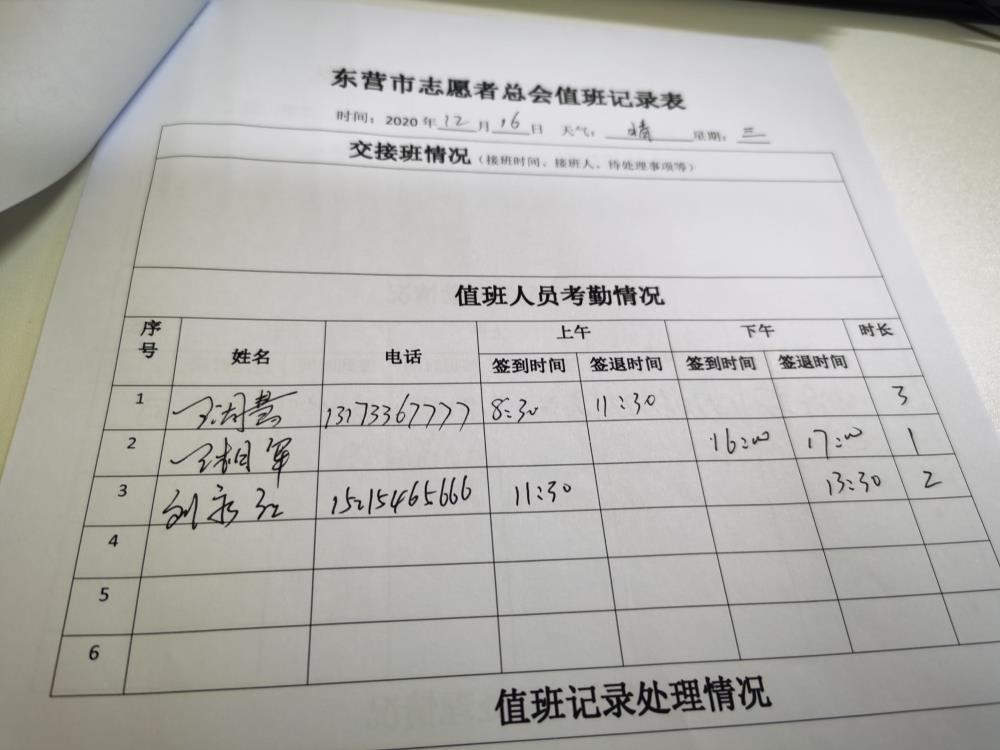 东营市志愿者总会值班记录表
时间：2020年12月16日 天气：晴 星期：三
交接班情况（接班时间、接班人、待处理事项等）
值班人员考勤情况
序号 姓名 电话 上午 下午 时长
签到时间 签退时间 签到时间 签退时间
1 王 慧 13173367777 8:30 11:30 3
2 王相军 16:00 17:00 1
3 刘永红 15215465666 11:30 13:30 2
4
5
6
值班记录处理情况